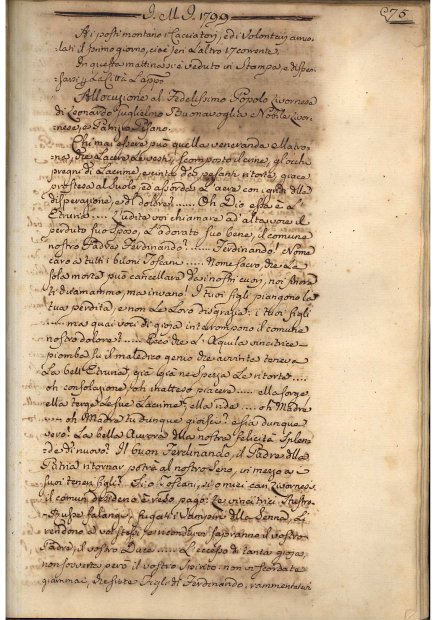 I. M. I. 1799
75
Ai posti montano i Cacciatori, ed i Volontarj arruo-
lati il primo giorno, cioè jeri l'altro 17 corrente.
In questa mattina si è veduto in Stampa, e disper-
sarsi p. la Città l'app.
Allocuzione al Fedelissimo Popolo Livornese
di Leonardo Guglielmo Buonavoglia Nobile Livor-
nese, e Patrizio Pisano.
Chi mai essere può quella veneranda Matro-
na, che lacere le vesti, scomposto il crine, gl'occhi
pregni di lacrime, e vinta da pesanti ritorte, giace
prostesa al suolo, ed assorda l'aere con i gridi della
disperazione, e di dolore? ..... Oh Dio essa è l'
Etruria ..... L'udite voi chiamare ad alta voce il
perduto suo Sposo, l'adorato suo bene, il comune
nostro Padre Ferdinando? ..... Ferdinando! Nome
caro a tutti i buoni Toscani ..... Nome sacro, che la
sola morte può cancellare da i nostri cuori, noi
ti richiamammo, ma invano! I tuoi figli piangono la
tua perdita, e non le loro disgrazie: i tuoi figli
..... ma quai voci di gioja interrompono il comune
nostro dolore? ..... Ecco che l'Aquila vincitrice
piomba sù il maledico genio che avvinta teneva
la bell'Etruria, già già ne spezza le ritorte ....
oh consolazione! oh inatteso piacere ..... ella sorge
ella terge le sue lacrime, ella ride .... oh Madre
oh Madre tu dunque gioisci? e sia dunque
vero? La bella Aurora della nostra felicità splen-
de di nuovo? Il buon Ferdinando, il Padre della
Patria ritornar potrà al nostro seno, in mezzo a
suoi teneri figli? Sì o Toscani, sì o miei cari Livornesi
il comun desiderio è reso pago: Le vincitrici Austro-
Russe falangi, fugati i Vampiri della Senna, ci
rendono a noi stessi, ricondurci sapranno il vostro
Padre, il vostro Duce ..... L'eccesso di tanta gioja
non sovverta però il vostro spirito: non vi scordate
giammai, che siete Figli di Ferdinando; rammentatevi